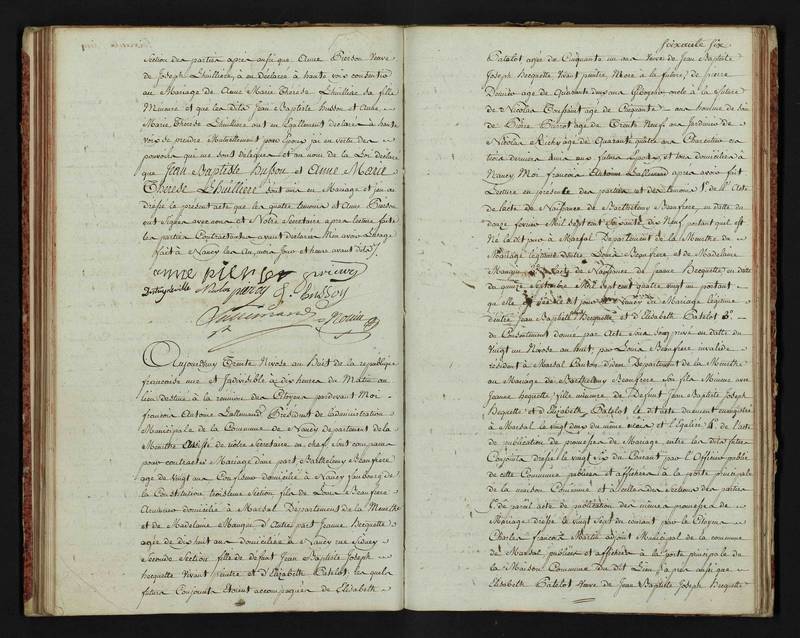 Section des parties apres ainsi que Anne Pierson Veuve
de Joseph Lhuilliere, à eu déclaré à haute voix consentir
au Mariage de Anne Marie Therese Lhuilliere sa fille
Mineure et que les dits Jean Baptiste Husson et Anne
Marie Therese Lhuilliere ont eu Egallement declaré à haute
voix se prendre Mutuellement pour Epoux j'ai en vertu des
pouvoirs qui me sont delegués et au nom de la Loi declaré
que Jean Baptiste Husson et Anne Marie
Therese Lhuilliere sont unis en Mariage et j'en ai
dressé le present acte que les quatre temoins et Anne Pierson
ont Signé avec nous et Notre Secretaire apres lecture faite
les parties Contractantes ayant declaré N'en avoir L'usage
fait à Nancy les An, mois Jour et heure avant dits
anne pierson
parisy
Lallemand
Aujourd'huy Trente Nivose an Huit de la republique
francaise une et Indivisible à dix heures du Matin au
lieu destiné à la reunion des Citoyens pardevant Moi
francois Antoine Lallemand President de L'administration
Municipale de la Commune de Nancy departement de la
Meurthe assisté de nôtre Secretaire en chef sont comparus
pour contracter Mariage d'une part, Barthelemy Beaufrere
agé de vingt ans Confiseur domicilié à Nancy faubourg de
la Constitution troisieme Section fils de Louis Beaufrere
domicilié à Marsal Departement de la Meurthe
et de Madelaine Mangin d'Autre part Jeanne Hequette
agée de dix huit ans domiciliée à Nancy rue Sidney
Seconde Section fille de defunt Jean Baptiste Joseph
hecquette Vivant peintre et d'Elizabeth Patelot, les quels
futurs Conjoints etoient accompagnés de Elisabeth
soixante six
Patalot agée de Cinquante un ans Veuve de Jean Baptiste
Joseph Hecquette Vivant peintre Mere à la future, de pierre
agé de Quarante ans
de Nicolas Toussaint agé de Cinquante ans homme de loi
de Pierre agé de Trente Neuf ans Jardinier de
Nicolas agé de Quarante quatre ans Charpentier ces
trois derniers amis aux futurs Epoux, et tous domiciliés à
Nancy Moi francois Antoine Lallemand apres avoir fait
Lecture en presence des parties et des temoins 1° de l'Acte
de l'acte de Naissance de Barthelemy Beaufrere, en datte du
fevrier Mil Sept cent Soixante dix Neuf portant que est
Né le dit jour à Marsal Departement de la Meurthe du
Mariage légitime d'entre Louis Beaufrere et de Madelaine
Mangin 2° acte de Naissance de jeanne Hecquette en datte
du quinze Septembre Mil Sept cent quatre vingt un portant
qu'elle est née le dit jour à Nancy du Mariage légitime
d'entre Jean Baptiste Hecquette et d'Elisabeth Patelot 3°
du Consentement donné par Acte Sous Seing privé en datte du
Vingt un Nivose an huit, par Louis Beaufrere invalide
résident à Marsal Canton d'idem Departement de la Meurthe
au Mariage de Barthelemy Beaufrere Son fils Mineur avec
Jeanne hequette fille mineure de Defunt Jean Baptiste Joseph
Hecquette et d'Elizabeth Patelot le dit acte duement enregistré
à Marsal le vingt deux du même mois et légalisé 4° de l'acte
de publication de promesses de Mariage entre les dits futurs
Conjoints dressé le vingt six du Courant par l'Officier public
de cette Commune publiée et affichée à la porte principale
de la maison Commune et à celle des Sections des parties
5° de pareil acte de publication des mêmes promesses de
Mariage dressé le vingt Sept du courant par le Citoyen
Charles françois Martin adjoint Municipal de la commune
de Marsal publiée et affichée à la porte principale de
la Maison Commune du dit Lieu, J'a pres ainsi que
Elisabeth Patelot Veuve de Jean Baptiste Joseph Hecquette